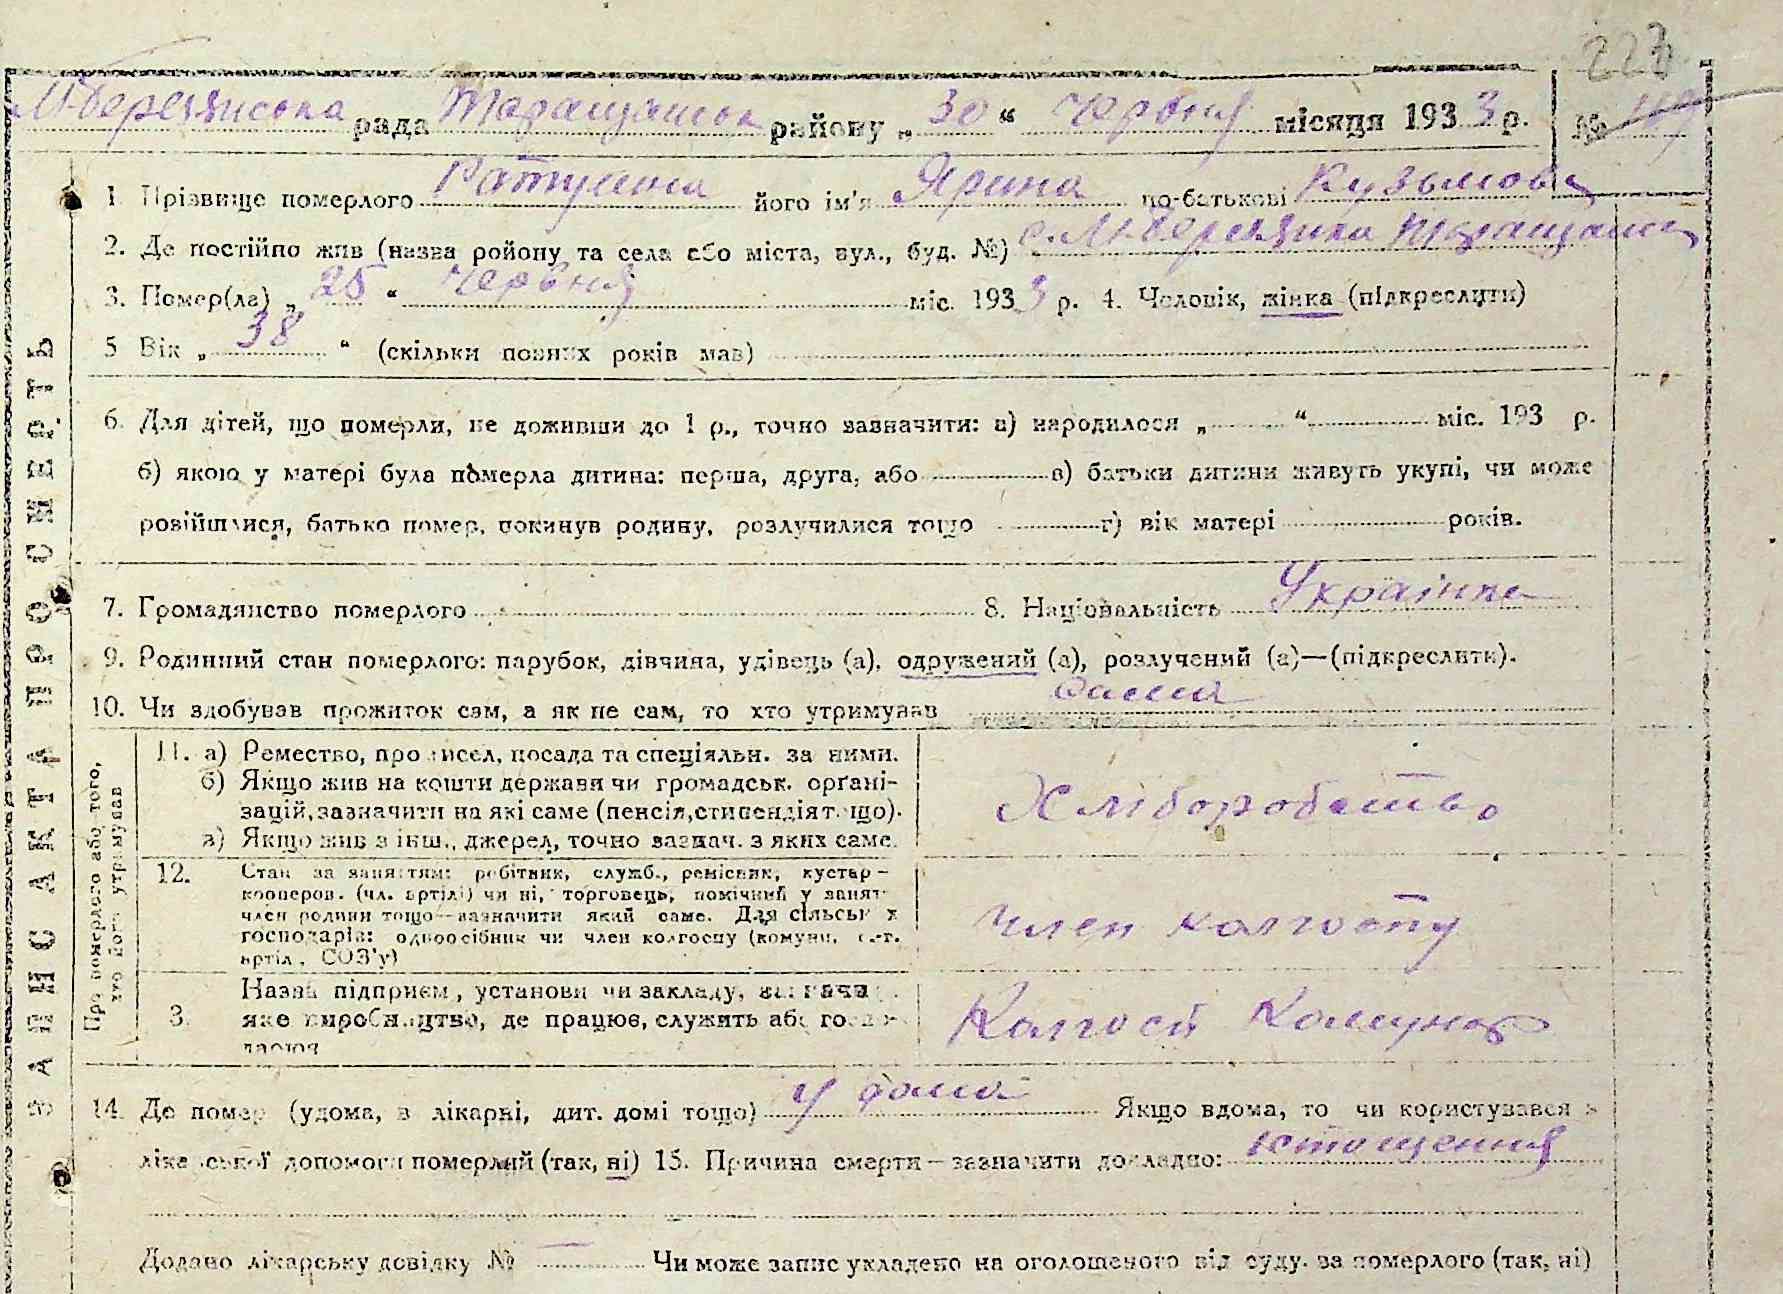 223
М-Березянська рада Таращанськ району „ 30 “ Червня місяця 193 3 р. №
1 Прізвище померлого Ратушна його ім'я Ярина по-батькові Кузьмова
2. Де постійно жив (назва ройону та села або міста, вул., буд. №) с. М-Березянка Таращанськ
3. Помер(ла) „ 25 “ Червня міс. 193 3 р. 4. Чоловік, жінка (підкреслити)
5 Вік „ 38 “ (скільки повних років мав)
6. Для дітей, що померли, не доживши до 1 р., точно зазначити: а) народилося „ “ міс. 193 р.
б) якою у матері була померла дитина: перша, друга, або в) батьки дитини живуть укупі, чи може
розійшлися, батько помер, покинув родину, розлучилися тощо г) вік матері років.
7. Громадянство померлого 8. Національність Українка
9. Родинний стан померлого: парубок, дівчина, удівець (а), одружений (а), розлучений (а)—(підкреслити).
10. Чи здобував прожиток сам, а як не сам, то хто утримував сама
11. а) Ремество, промисел, посада та спеціяльн. за ними.
б) Якщо жив на кошти держави чи громадськ. орґані-
зацій, зазначити на які саме (пенсія, стипендія тощо).
в) Якщо жив з інш., джерел, точно зазнач. з яких саме.
Хліборобство
12. Стан за заняттям: робітник, служб., ремісник, кустар-
кооперов. (чл. артілі) чи ні, торговець, помічний у занят
член родини тощо—зазначити який саме. Для сільськ х
господарів: одноосібник чи член колгоспу (комуни, с.-г.
артіл., СОЗ'у)
член колгоспу
3. Назва підприєм., установи чи закладу,
яке виробництво, де працює, служить або
Колгосп Комунар
14. Де помер (удома, в лікарні, дит. домі тощо) у дома Якщо вдома, то чи користувався з
лікарської допомоги померлий (так, ні) 15. Причина смерти—зазначити докладно: істощення
Додано лікарську довідку № — Чи може запис укладено на оголошеного від суду за померлого (так, ні)
ЗАПИС АКТА ПРО СМЕРТЬ
Про померлого або того,
хто його утримував